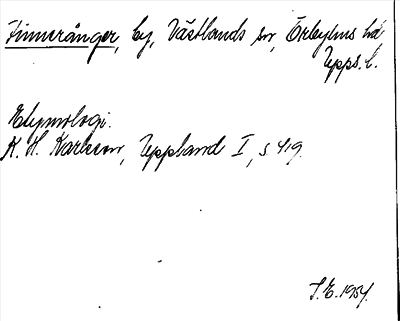 Finnerånger, by, Västlands sn, Örbyhus hd
Upps. l.
Etymologi.
K. H. Karlsson, Uppland I, s. 419.
S.E. 1954.